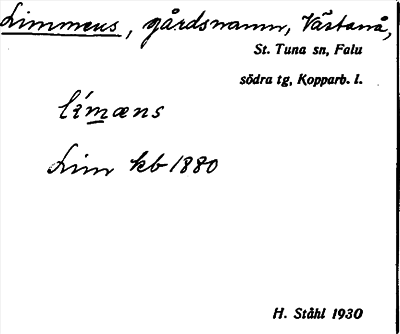 Limmens, gårdsnamn, Västanå,
St. Tuna sn, Falu
södra tg, Kopparb. l.
límæns
Lim kb 1880
H. Ståhl 1930